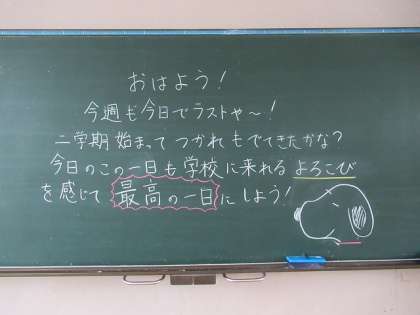 おはよう!
今週も今日でラストや～!
二学期始まって つかれもでてきたかな?
今日のこの一日も学校に来れるよろこび
を感じて最高の一日にしよう!